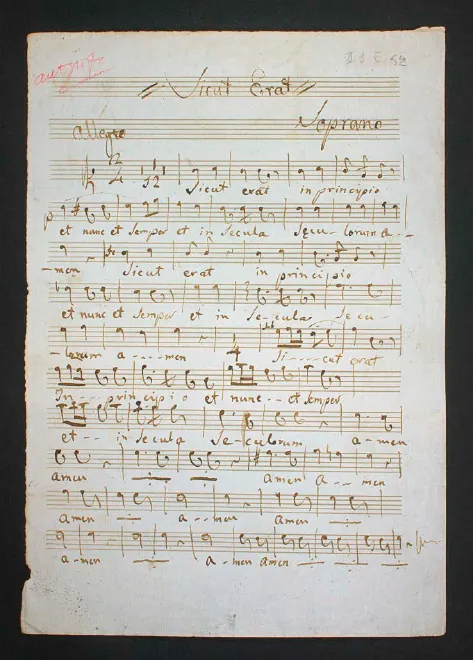 autogr.
II 1 E 52
Sicut Erat
Soprano
Allegro
2/4 12
Sicut erat in principio
et nunc et Semper et in Secula Secu-lorum a--
-men Sicut erat in principio
et nunc et Semper et in Se-cula Se cu-
-lorum a---men 4 Si----cut erat
In---principio et nunc--et Semper
et-- in Secula Se-culorum a-men
amen amen a--men
amen a--men amen
a-men a-men amen